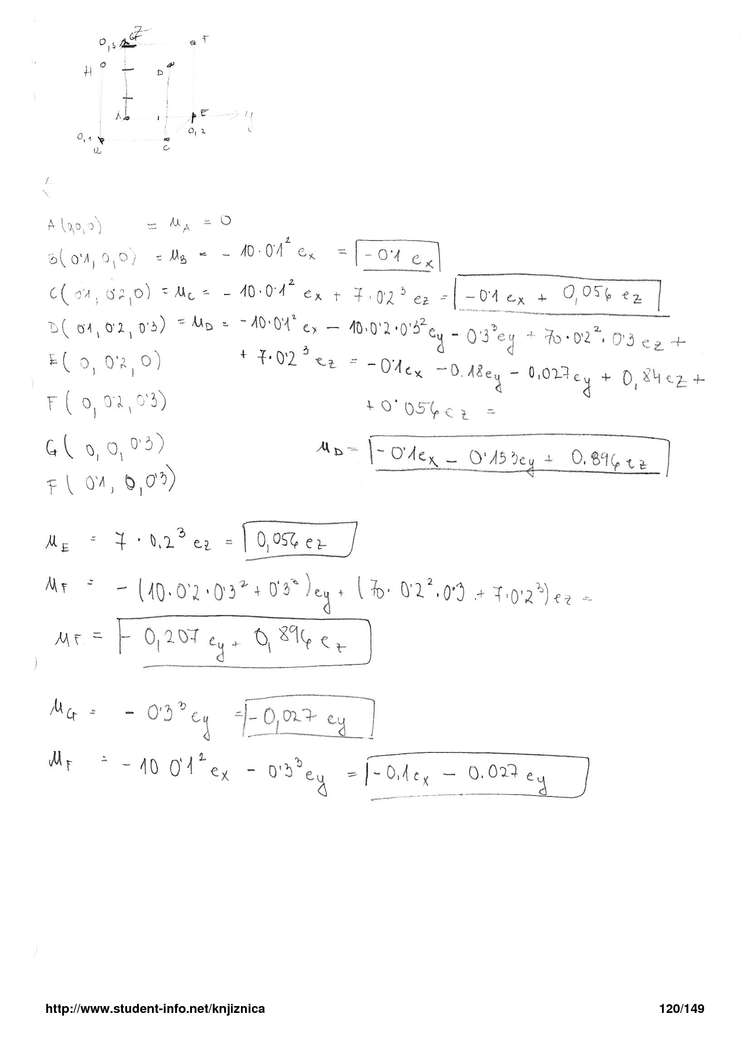 0,3 G F
H 0 D
A E y
0,1 0,2
B C
A (0,0,0) = u_A = 0
B(0'1, 0,0) = u_B = - 10·0'1² e_x = - 0'1 e_x
C(0'1, 0'2,0) = u_C = - 10·0'1² e_x + 7·0'2³ e_z = - 0'1 e_x + 0,056 e_z
D(0'1, 0'2, 0'3) = u_D = -10·0'1² e_x - 10·0'2·0'3² e_y - 0'3³ e_y + 70·0'2²·0'3 e_z +
E(0, 0'2, 0) + 7·0'2³ e_z = -0'1 e_x -0.18 e_y - 0,027 e_y + 0,84 e_z +
F(0, 0'2, 0'3) + 0'056 e_z =
G(0, 0, 0'3) u_D = - 0'1 e_x - 0'153 e_y + 0.896 e_z
F(0'1, 0, 0'3)
u_E = 7 · 0.2³ e_z = 0,056 e_z
u_F = - (10·0'2·0'3² + 0'3³) e_y + (70·0'2²·0'3 + 7·0'2³) e_z =
u_F = - 0,207 e_y + 0,896 e_z
u_G = - 0'3³ e_y = - 0,027 e_y
u_F = - 10 0'1² e_x - 0'3³ e_y = - 0,1 e_x - 0.027 e_y
http://www.student-info.net/knjiznica 120/149